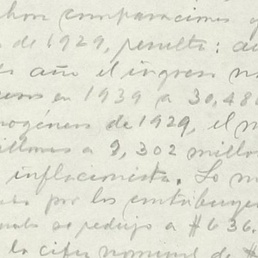 comparaciones y
de 1929, resulta: a
año el ingreso n
en 1939 a 30,480
de 1929, el m
llones a 9,302 millo
inflacionista. Lo m
por los contribuye
se redujo a $636.
la cifra nominal de $